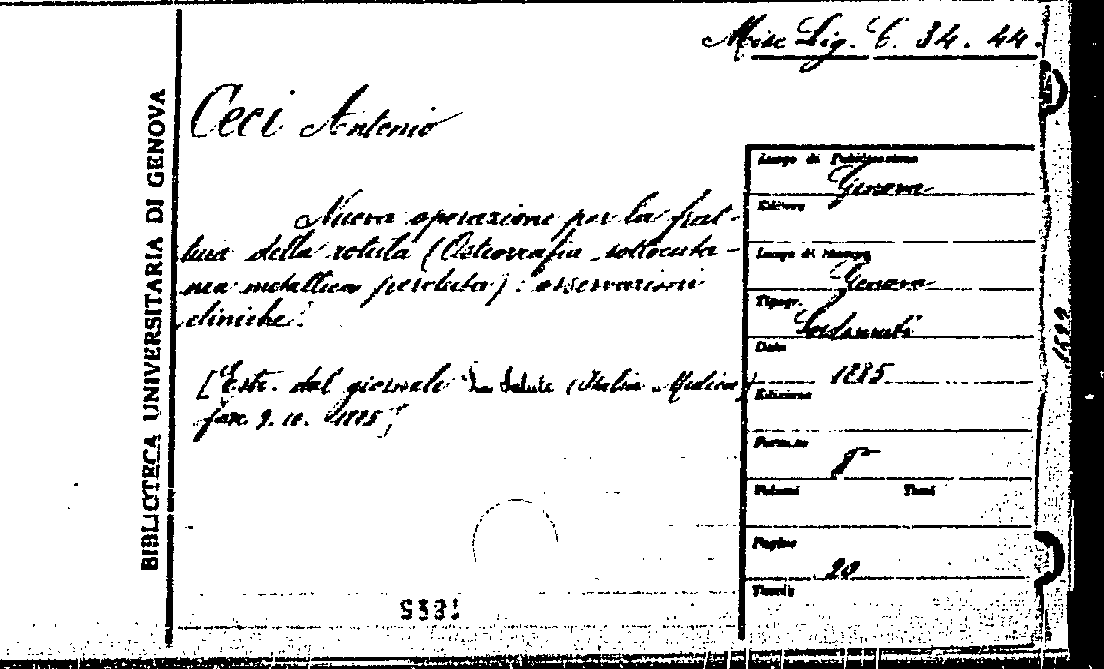 Misc Lig. C. 34. 44.
BIBLIOTECA UNIVERSITARIA DI GENOVA
Ceci Antonio
Nuova operazione per la frat-
tura della rotula (Osteorafia sottocuta-
nea metallica perduta): osservazioni
cliniche.
[Estr. dal giornale La Salute (Italia Medica)
fasc. 9. 10. 1885]
Luogo di Pubblicazione
Genova
Editore
Luogo di Stampa
Genova
Tipogr.
Data
1885
Edizione
Formato
8°
Volumi Tomi
Pagine
20